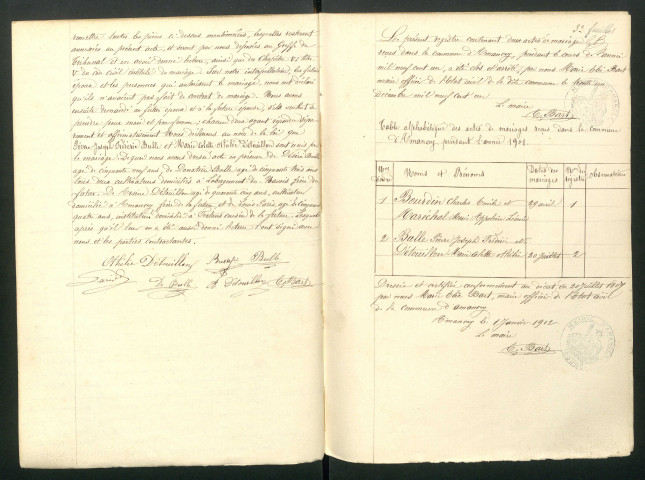 remettre toutes les pièces ci dessus mentionnées, lesquelles resteront
annexées au présent acte, et seront par nous déposées au Greffe du
Tribunal et en avoir donné lecture, ainsi que du Chapitre VI titre
V du Code civil intitulé du mariage. Sur notre interpellation, les futurs
époux et les personnes qui autorisent le mariage, nous ont déclaré
qu'ils n'avaient pas fait de contrat de mariage. Nous avons
ensuite demandé au futur époux et à la future épouse, s'ils veulent se
prendre pour mari et pour femme; chacun d'eux ayant répondu séparé-
ment et affirmativement Nous déclarons au nom de la loi que
Pierre Joseph Balle et Marie Détouillon sont unis par
le mariage. De quoi nous avons dressé acte en présence de Désiré Balle
agé de cinquante neuf ans, de Donatien Balle agé de cinquante trois ans
tous deux cultivateurs domiciliés à Labergement du Navois
futur. De Détouillon agé de quarante cinq ans, cultivateur
domicilié à Amancey frère de la future, et de Louis agé de cinquante
quatre ans, instituteur domicilié à cousin de la future. Lesquels
après qu'il leur en a été aussi donné lecture l'ont signé avec
nous, et les parties contractantes.
Détouillon Balle
Balle Détouillon C. Bart
52 feuillet
Le présent registre contenant deux actes de mariage
reçus dans la commune d'Amancey, pendant le cours de l'année
mil neuf cent un, a été clos et arrêté, par nous Marie Bart
maire officier de l'état civil de la dite commune le trente un
décembre mil neuf cent un
Le maire
C. Bart
Table alphabétique des actes de mariages reçus dans la commune
d'Amancey pendant l'année 1901.
Noms et Prénoms Dates des mariages Nos du registre Observations
1 Bourdin Charles Emile et
Maréchal Marie 29 avril 1
2 Balle Pierre Joseph et
Détouillon Marie 20 juillet 2
Dressée et certifiée conformément au décret du 20 juillet 1807
par nous Marie Bart, maire officier de l'état civil
de la commune d'Amancey
Amancey le 1er Janvier 1902
Le maire
C. Bart